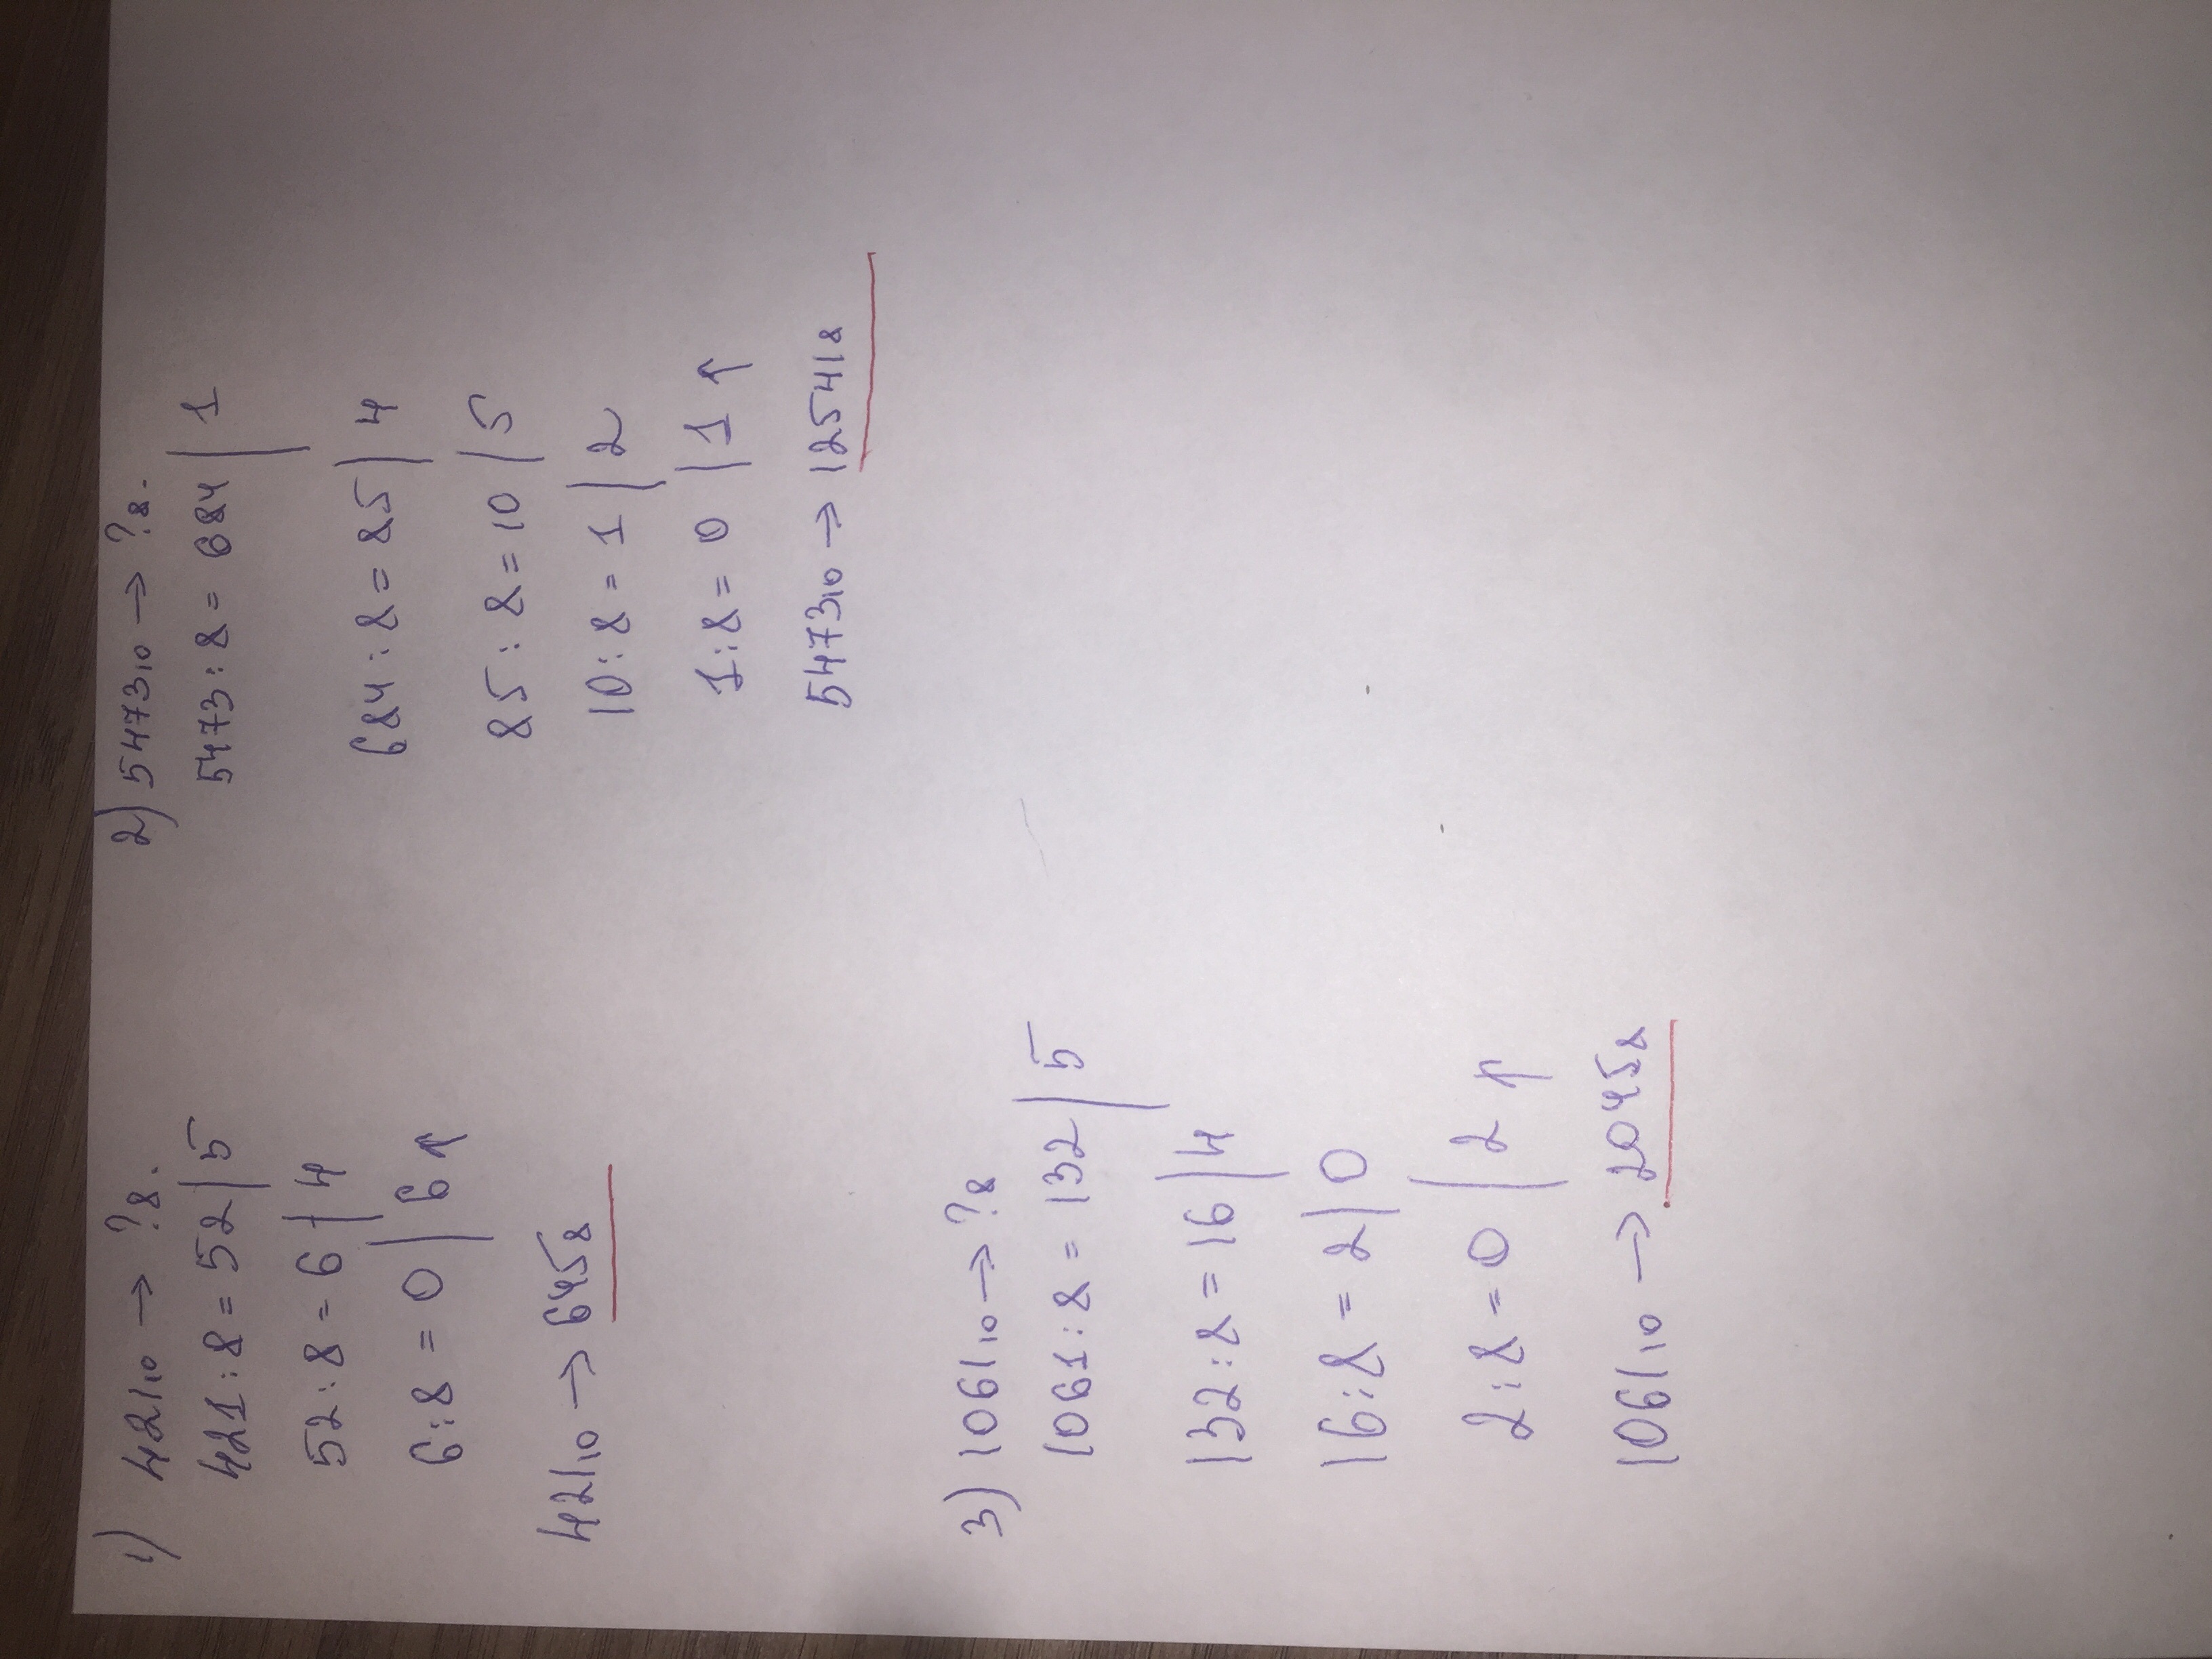 1) 421₁₀ → ?₈.
421 : 8 = 52 | 5
52 : 8 = 6 | 4
6 : 8 = 0 | 6 ↑
421₁₀ → 645₈
2) 5473₁₀ → ?₈.
5473 : 8 = 684 | 1
684 : 8 = 85 | 4
85 : 8 = 10 | 5
10 : 8 = 1 | 2
1 : 8 = 0 | 1 ↑
5473₁₀ → 12541₈
3) 1061₁₀ → ?₈
1061 : 8 = 132 | 5
132 : 8 = 16 | 4
16 : 8 = 2 | 0
2 : 8 = 0 | 2 ↑
1061₁₀ → 2045₈